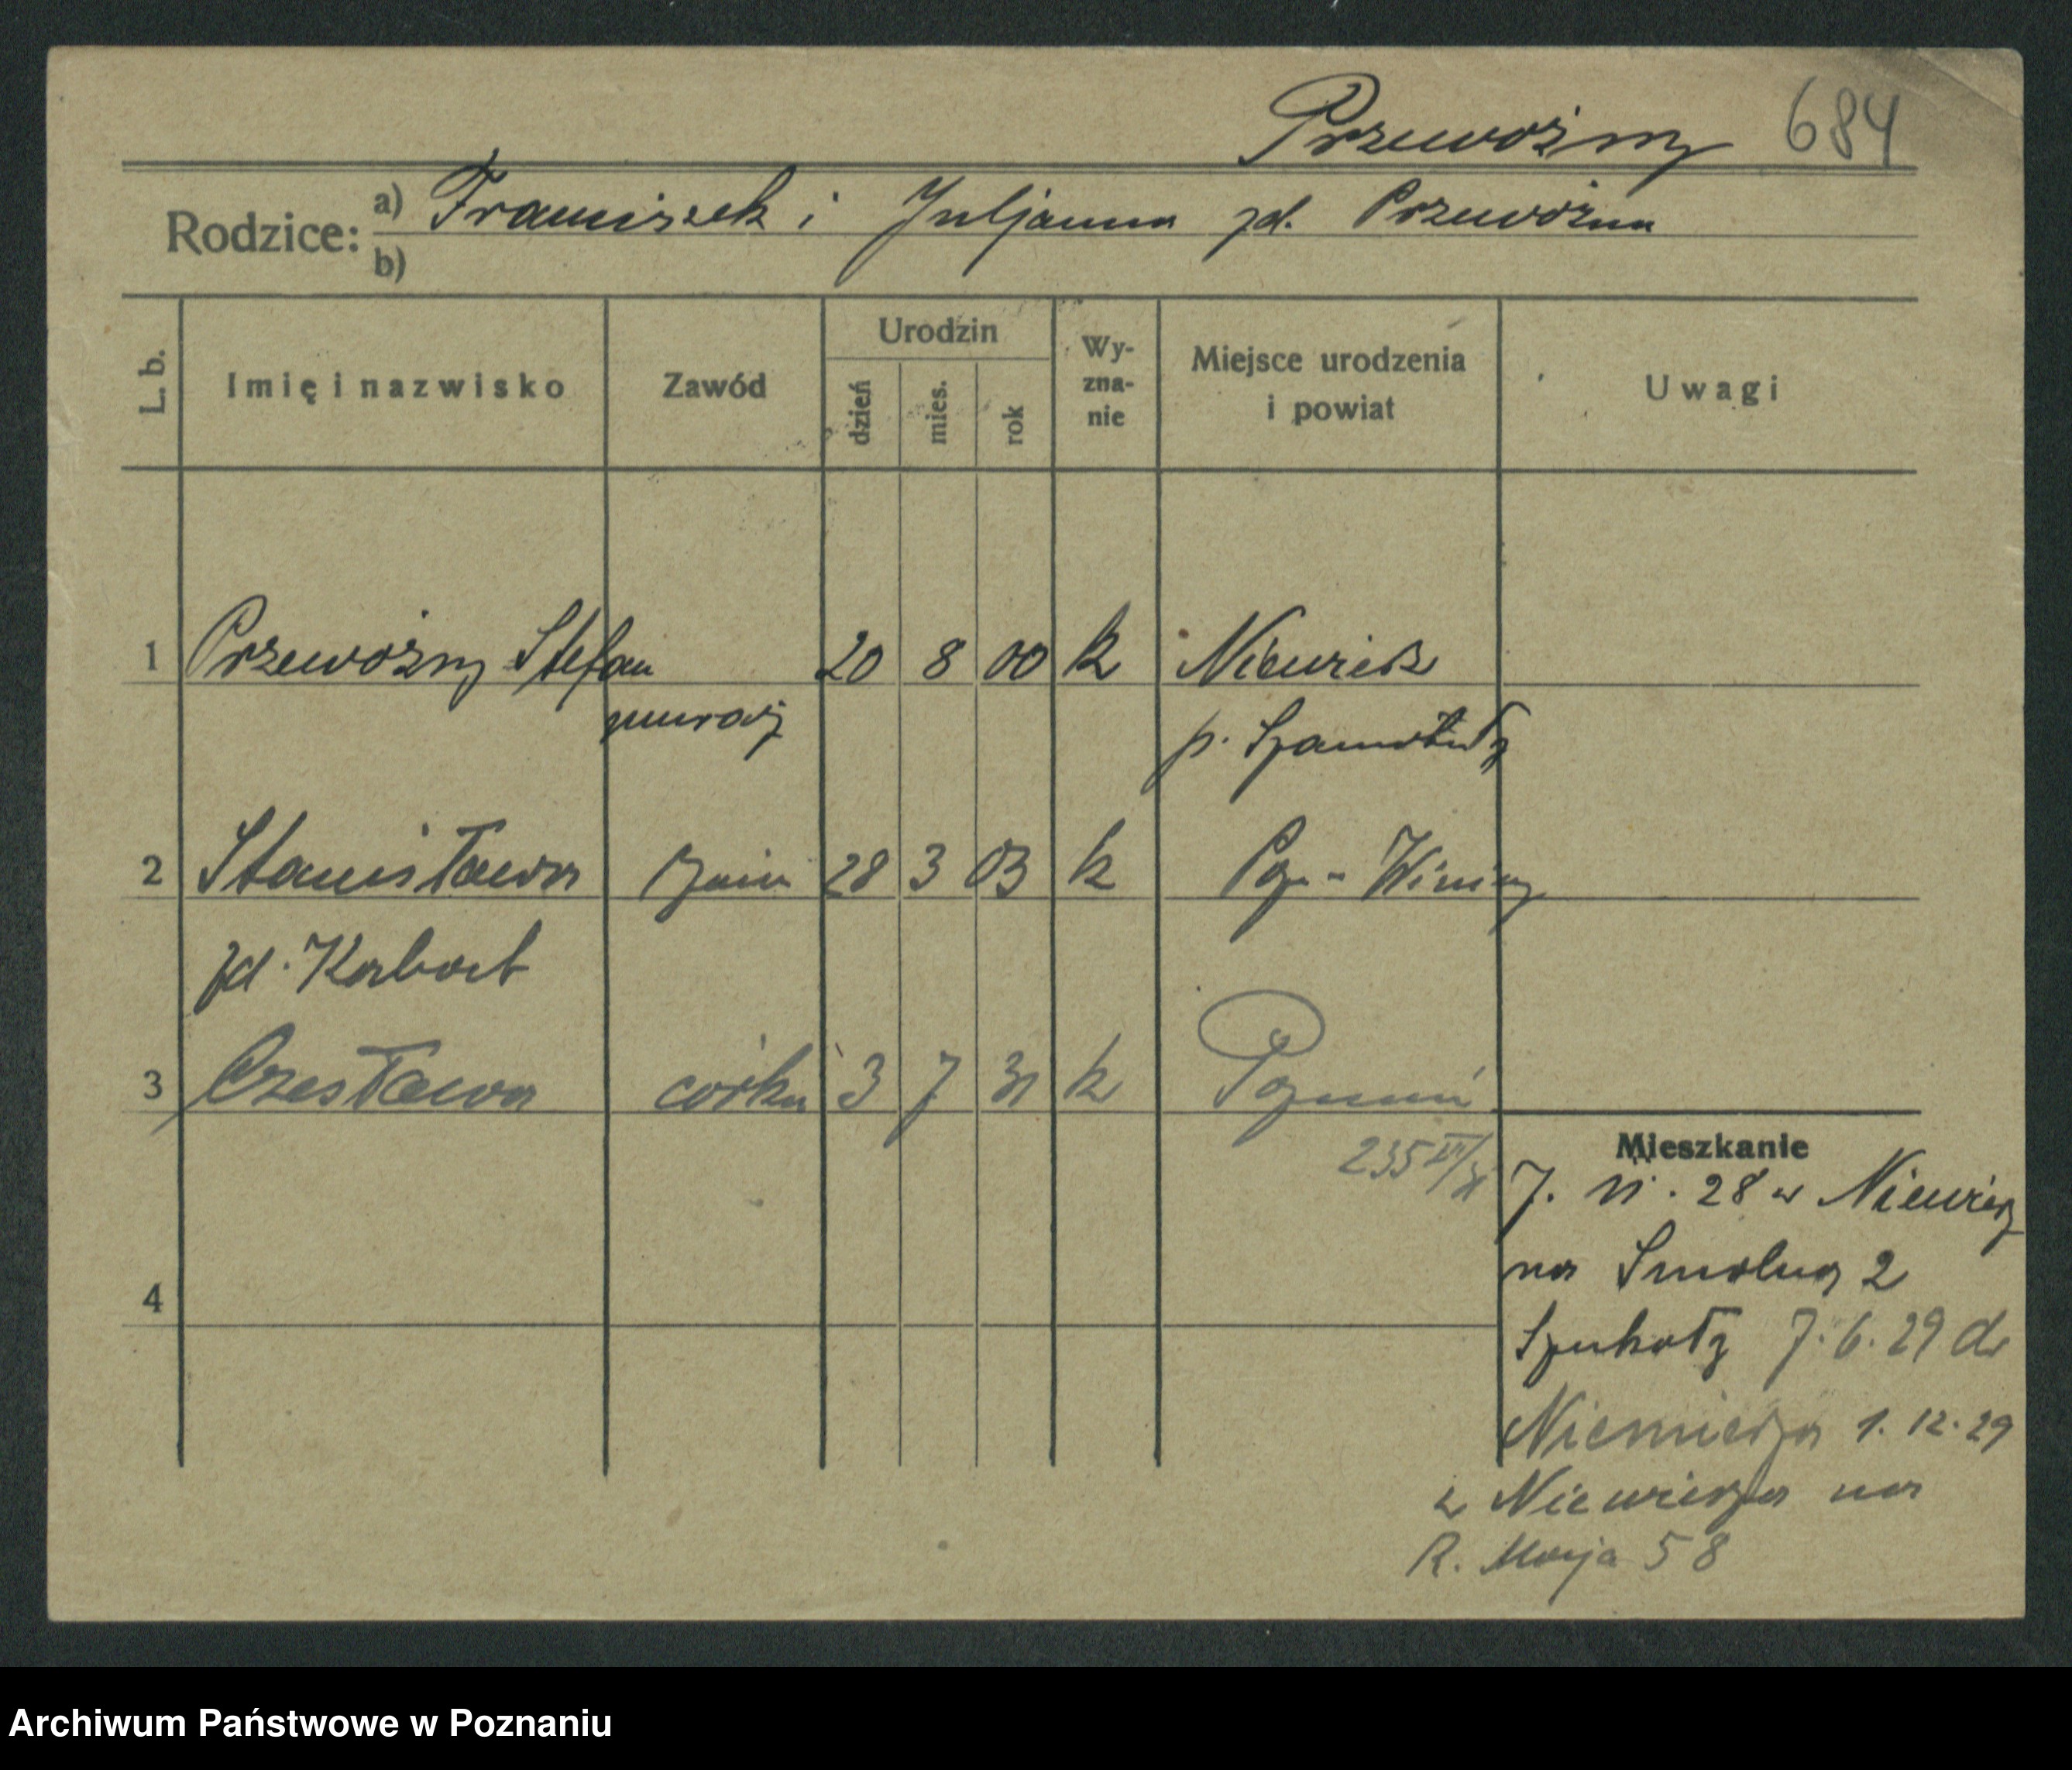 Przewoźny 684
Rodzice: a) Franciszek i Juljanna zd. Przewoźna
b)
L. b. Imię i nazwisko Zawód Urodzin dzień mies. rok Wyznanie Miejsce urodzenia i powiat Uwagi
1 Przewoźny Stefan 20 8 00 k Niewierz
murarz p. Szamotuły
2 Stanisława żona 28 3 03 k Poz - Winiary
zd. Kabat
3 Czesława córka 3 7 31 k Poznań
235
Mieszkanie
7. VI. 28 w Niewierz
na Smolna 2
Szukała 7. 6. 29 do
Niemierza 1. 12. 29
z Niewierza na
R. Maja 58
4
Archiwum Państwowe w Poznaniu